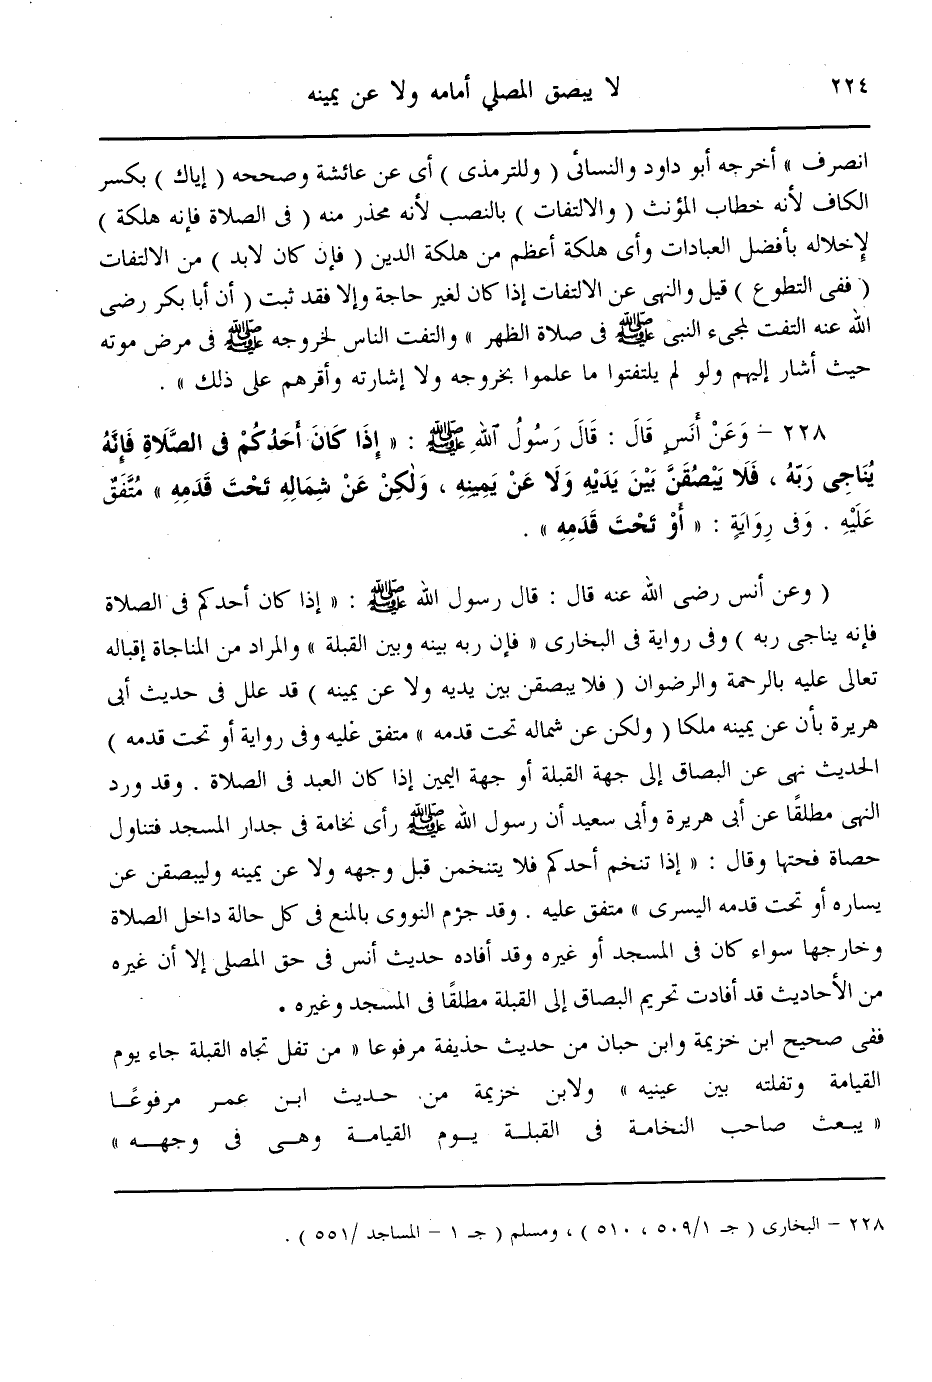 ٢٢٤
لا يبصق المصلي أمامه ولا عن يمينه
انصرف » أخرجه أبو داود والنسائى ( وللترمذى ) أى عن عائشة وصححه ( إياك ) بكسر
الكاف لأنه خطاب المؤنث ( والالتفات ) بالنصب لأنه محذر منه ( فى الصلاة فإنه هلكة )
لإخلاله بأفضل العبادات وأى هلكة أعظم من هلكة الدين ( فإن كان لابد ) من الالتفات
( ففى التطوع ) قيل والنهى عن الالتفات إذا كان لغير حاجة وإلا فقد ثبت ( أن أبا بكر رضى
الله عنه التفت لمجىء النبى ﷺ فى صلاة الظهر » والتفت الناس لخروجه ﷺ فى مرض موته
حيث أشار إليهم ولو لم يلتفتوا ما علموا بخروجه ولا إشارته وأقرهم على ذلك » .
٢٢٨ - وَعَنْ أَنَسٍ قَالَ : قَالَ رَسُولُ ٱللهِ ﷺ : « إِذَا كَانَ أَحَدُكُمْ فى الصَّلَاةِ فَإِنَّهُ
يُنَاجِى رَبَّهُ ، فَلَا يَبْصُقَنَّ بَيْنَ يَدَيْهِ وَلَا عَنْ يَمِينِهِ ، وَلٰكِنْ عَنْ شِمَالِهِ تَحْتَ قَدَمِهِ » مُتَّفَقٌ
عَلَيْهِ . وَفى رِوَايَةٍ : « أَوْ تَحْتَ قَدَمِهِ » .
( وعن أنس رضى الله عنه قال : قال رسول الله ﷺ : « إذا كان أحدكم فى الصلاة
فإنه يناجى ربه ) وفى رواية فى البخارى « فإن ربه بينه وبين القبلة » والمراد من المناجاة إقباله
تعالى عليه بالرحمة والرضوان ( فلا يبصقن بين يديه ولا عن يمينه ) قد علل فى حديث أبى
هريرة بأن عن يمينه ملكا ( ولكن عن شماله تحت قدمه » متفق عليه وفى رواية أو تحت قدمه )
الحديث نهى عن البصاق إلى جهة القبلة أو جهة اليمين إذا كان العبد فى الصلاة . وقد ورد
النهى مطلقًا عن أبى هريرة وأبى سعيد أن رسول الله ﷺ رأى نخامة فى جدار المسجد فتناول
حصاة فحتها وقال : « إذا تنخم أحدكم فلا يتنخمن قبل وجهه ولا عن يمينه وليبصقن عن
يساره أو تحت قدمه اليسرى » متفق عليه . وقد جزم النووى بالمنع فى كل حالة داخل الصلاة
وخارجها سواء كان فى المسجد أو غيره وقد أفاده حديث أنس فى حق المصلى إلا أن غيره
من الأحاديث قد أفادت تحريم البصاق إلى القبلة مطلقًا فى المسجد وغيره .
ففى صحيح ابن خزيمة وابن حبان من حديث حذيفة مرفوعا « من تفل تجاه القبلة جاء يوم
القيامة وتفلته بين عينيه » ولابن خزيمة من حديث ابن عمر مرفوعًا
« يبعث صاحب النخامة فى القبلة يوم القيامة وهى فى وجهه »
٢٢٨ - البخارى ( جـ ٥٠٩/١ ، ٥١٠ ) ، ومسلم ( جـ ١ - المساجد /٥٥١ ) .